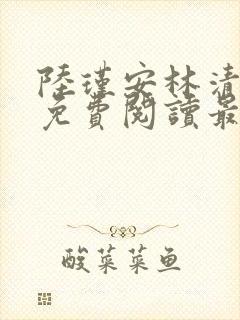 陸瑾安林清
免費閱讀最
酸菜菜鱼